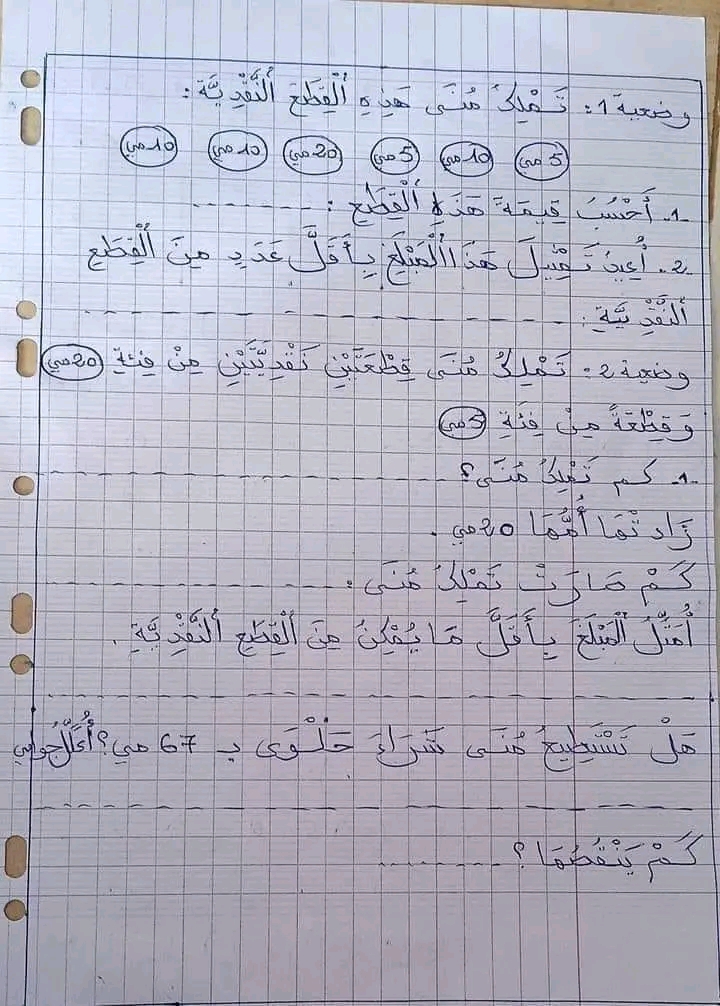 وضعية 1: تَمْلِكُ مُنَى هَذِهِ اُلْقِطَعَ اُلنَّقْدِيَّةَ:
5مي 10مي 5مي 20مي 10مي 10مي
1. أَحْسُبُ قِيمَةَ هَذِهِ اُلْقِطَعِ :
2. أُعِيدُ تَمْثِيلَ هَذَا اُلْمَبْلَغِ بِأَقَلَّ عَدَدٍ مِنَ اُلْقِطَعِ
اُلنَّقْدِيَّةِ :
وضعية 2: تَمْلِكُ مُنَى قِطْعَتَيْنِ نَقْدِيَّتَيْنِ مِنْ فِئَةِ 20مي
وَقِطْعَةً مِنْ فِئَةِ 5مي
1. كم تَمْلِكُ مُنَى؟
زَادَتْهَا أُمُّهَا 20مي.
كَمْ صَارَتْ تَمْلِكُ مُنَى :
أُمَثِّلُ اُلْمَبْلَغَ بِأَقَلَّ مَا يُمْكِنُ مِنَ اُلْقِطَعِ اُلنَّقْدِيَّةِ .
هَلْ تَسْتَطِيعُ مُنَى شِرَاءَ حَلْوَى بـ 67 مي؟ أُعَلِّلُ جوابي
كَمْ يَنْقُصُهَا ؟